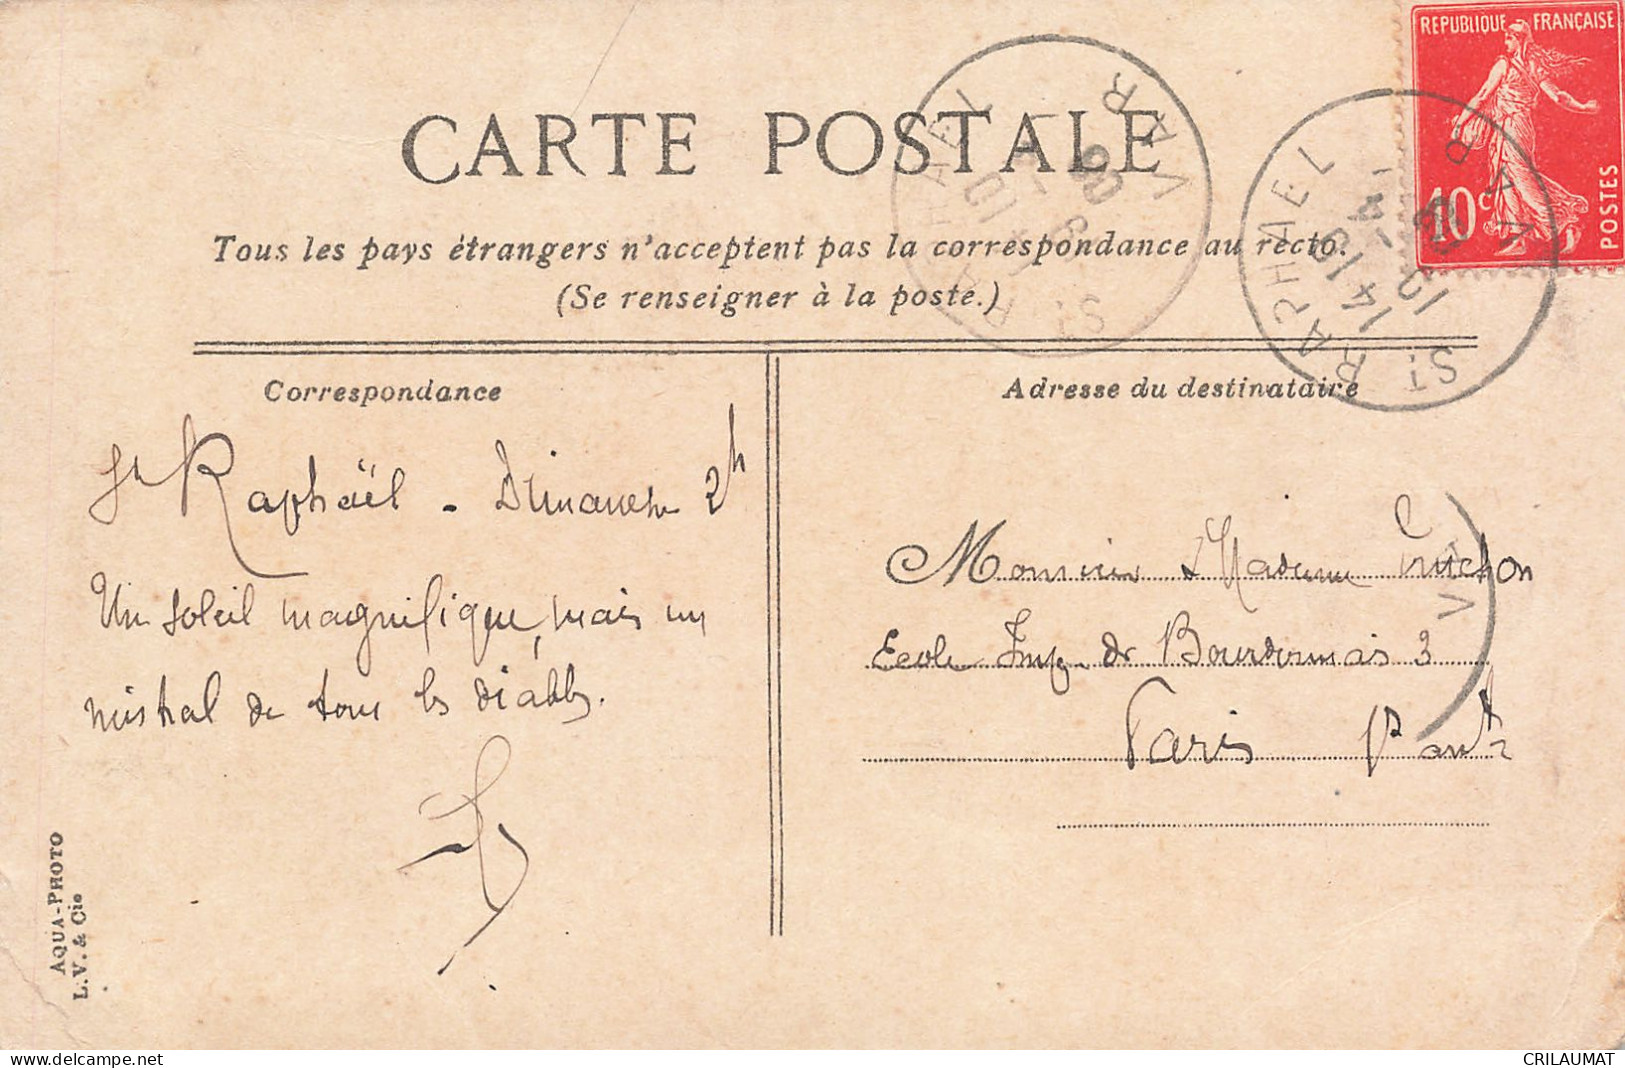 CARTE POSTALE
REPUBLIQUE FRANÇAISE
10c
POSTES
ST RAPHAEL VAR
ST RAPHAEL VAR
Tous les pays étrangers n'acceptent pas la correspondance au recto.
(Se renseigner à la poste.)
Correspondance
Adresse du destinataire
St Raphaël - Dimanche 2h
Un soleil magnifique, mais un
mistral de tous les diables.
Monsieur & Madame
Ecole Imp. de 3
Paris
VAR
AQUA-PHOTO
L.V. & Cie
delcampe.net
CRILAUMAT